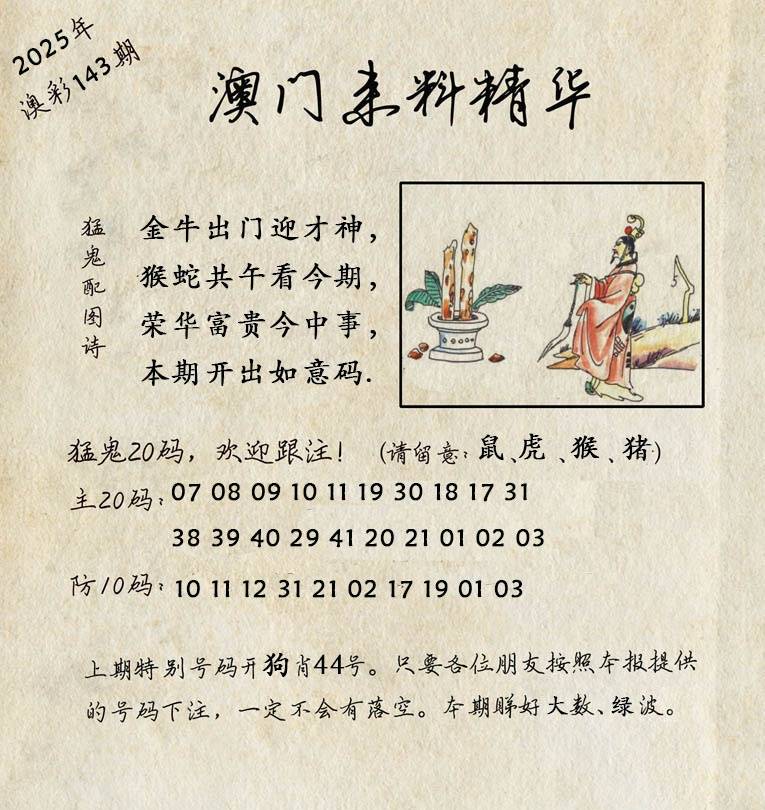 2025年
澳彩143期
澳门来料精华
猛鬼配图诗
金牛出门迎才神，
猴蛇共午看今期，
荣华富贵今中事，
本期开出如意码.
猛鬼20码，欢迎跟注！（请留意：鼠、虎、猴、猪）
主20码：07 08 09 10 11 19 30 18 17 31
38 39 40 29 41 20 21 01 02 03
防10码：10 11 12 31 21 02 17 19 01 03
上期特别号码开狗肖44号。只要各位朋友按照本报提供
的号码下注，一定不会有落空。本期睇好大数、绿波。